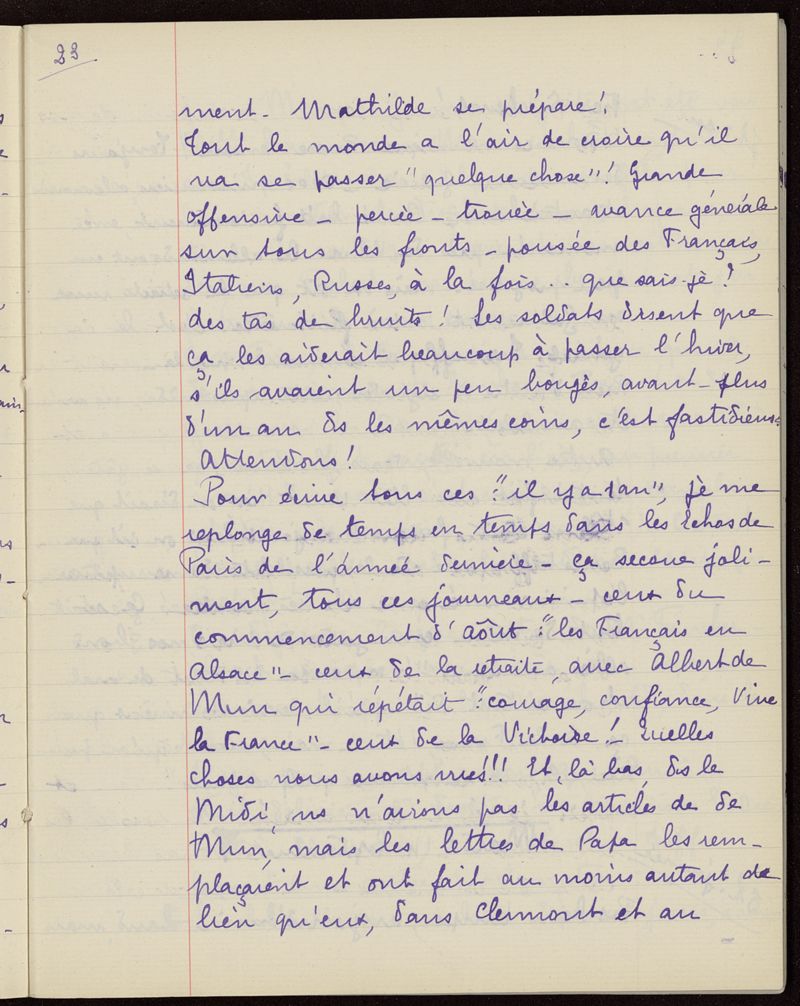 23
ment. Mathilde se prépare!
Tout le monde a l'air de croire qu'il
va se passer "quelque chose"! Grande
offensive - percée - trouée - avance générale
sur tous les fronts - poussée des Français,
Italiens, Russes, à la fois.. que sais-je?
des tas de bruits! Les soldats disent que
ça les aiderait beaucoup à passer l'hiver,
s'ils avaient un peu bougés, avant - plus
d'un an ds les mêmes coins, c'est fastidieux.
Attendons!
Pour écrire tous ces "il y a 1 an", je me
replonge de temps en temps dans les Echos de
Paris de l'année dernière - ça secoue joli-
ment, tous ces journeaux - ceux du
commencement d'août: "les Français en
Alsace" - ceux de la retraite, avec Albert de
Mun qui répétait: "courage, confiance, Vive
la France" - ceux de la Victoire! Quelles
choses nous avons vues!!! Et, là bas, ds le
Midi, ns n'avions pas les articles de de
Mun, mais les lettres de Papa les rem-
plaçaient et ont fait au moins autant de
bien qu'eux, dans Clermont et au